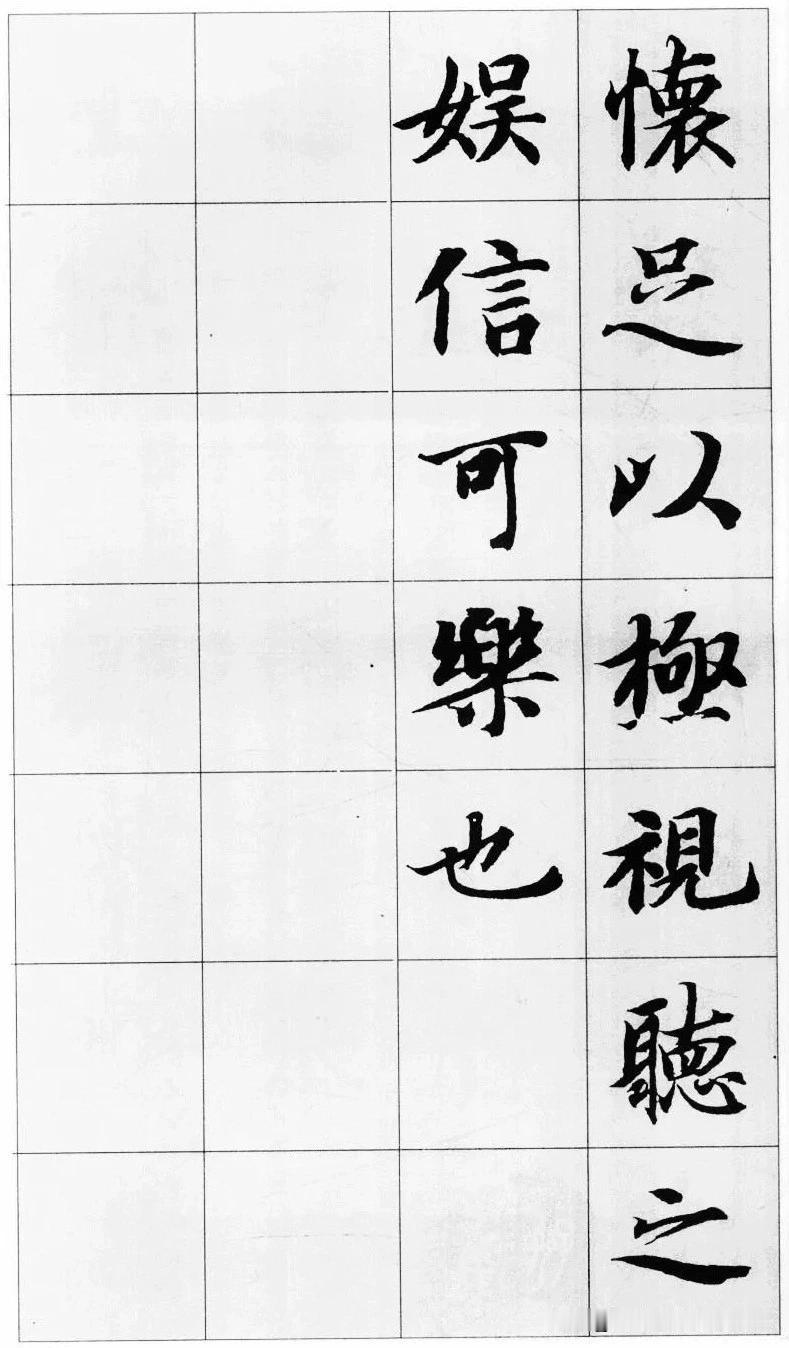 懷足以極視聽之
娱信可樂也